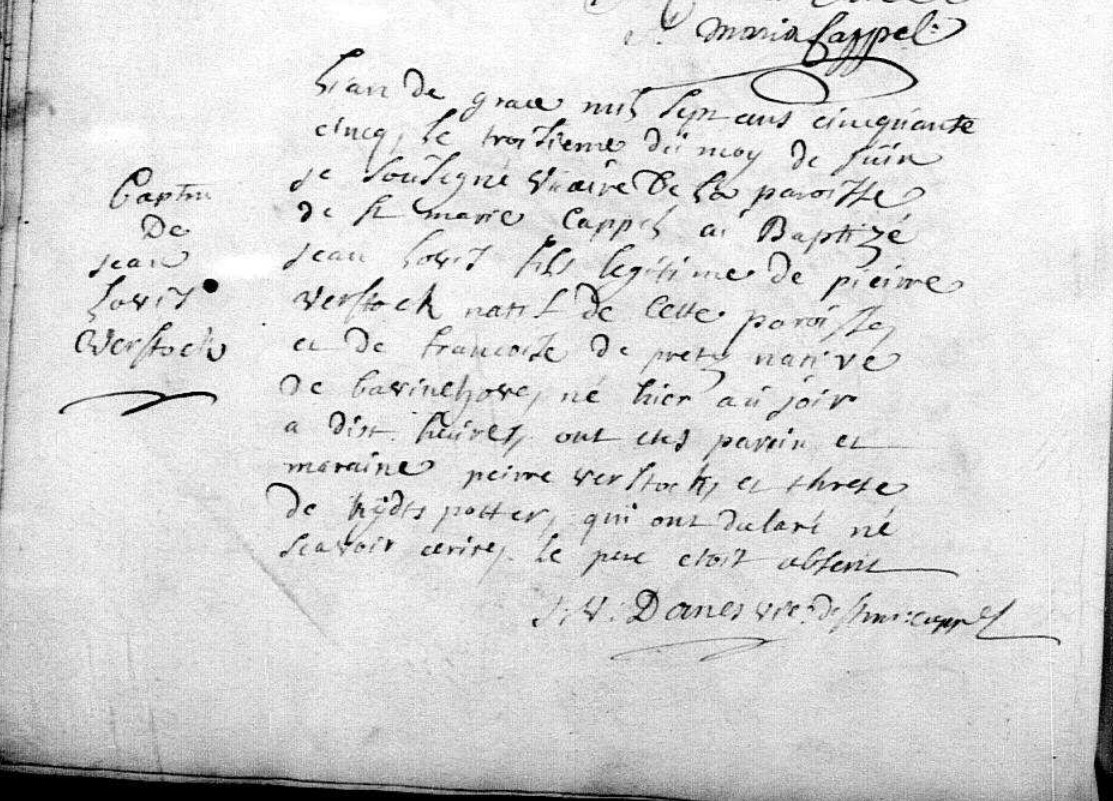 maria Cappel
Baptm
De
jean
Lovis
Verstock
L'an de grace mil sept cens cincquante
cincq, le troisieme du moy de juin
je sousegné vicaire De La paroisse
de St marie Cappel ai Baptizé
jean Lovis fils legitime de pieirre
verstock natif de Cette paroisse,
et de francoise de pretz native
de bavinchove, né hier au soir
a dix heures, ont etes parein et
maraine peirre verstock, et threse
de hijdts potter, qui ont declaré né
scavoir ecrire, le pere etoit absent
J. V. Danes vic: de st mar: cappel